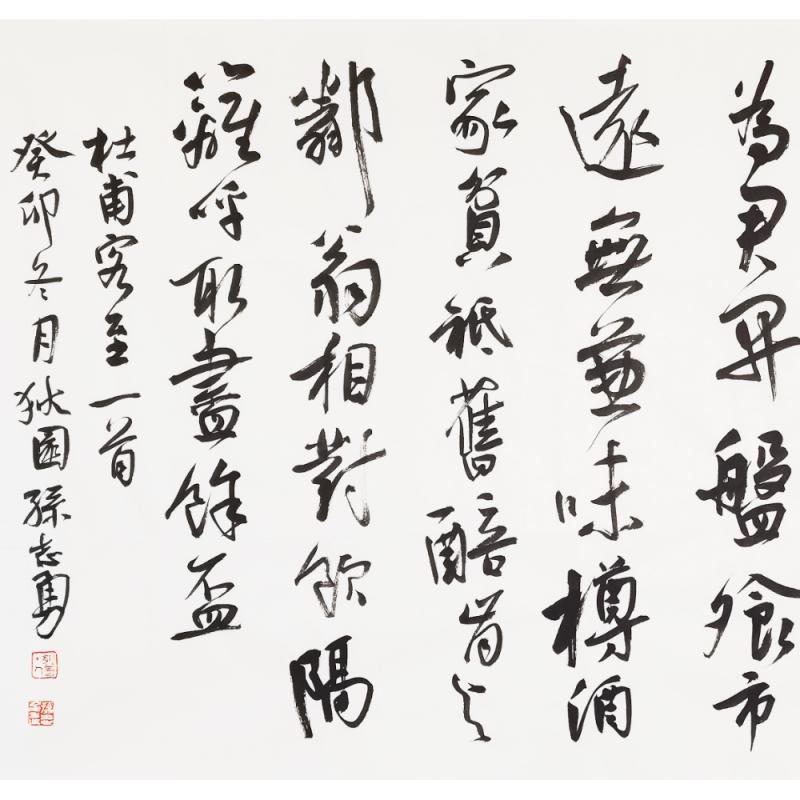 為君開盤飧市
遠無兼味樽酒
家貧祗舊醅肯与
鄰翁相對飲隔
籬呼取盡餘盃
杜甫客至一首
癸卯冬月狄園孫志勇